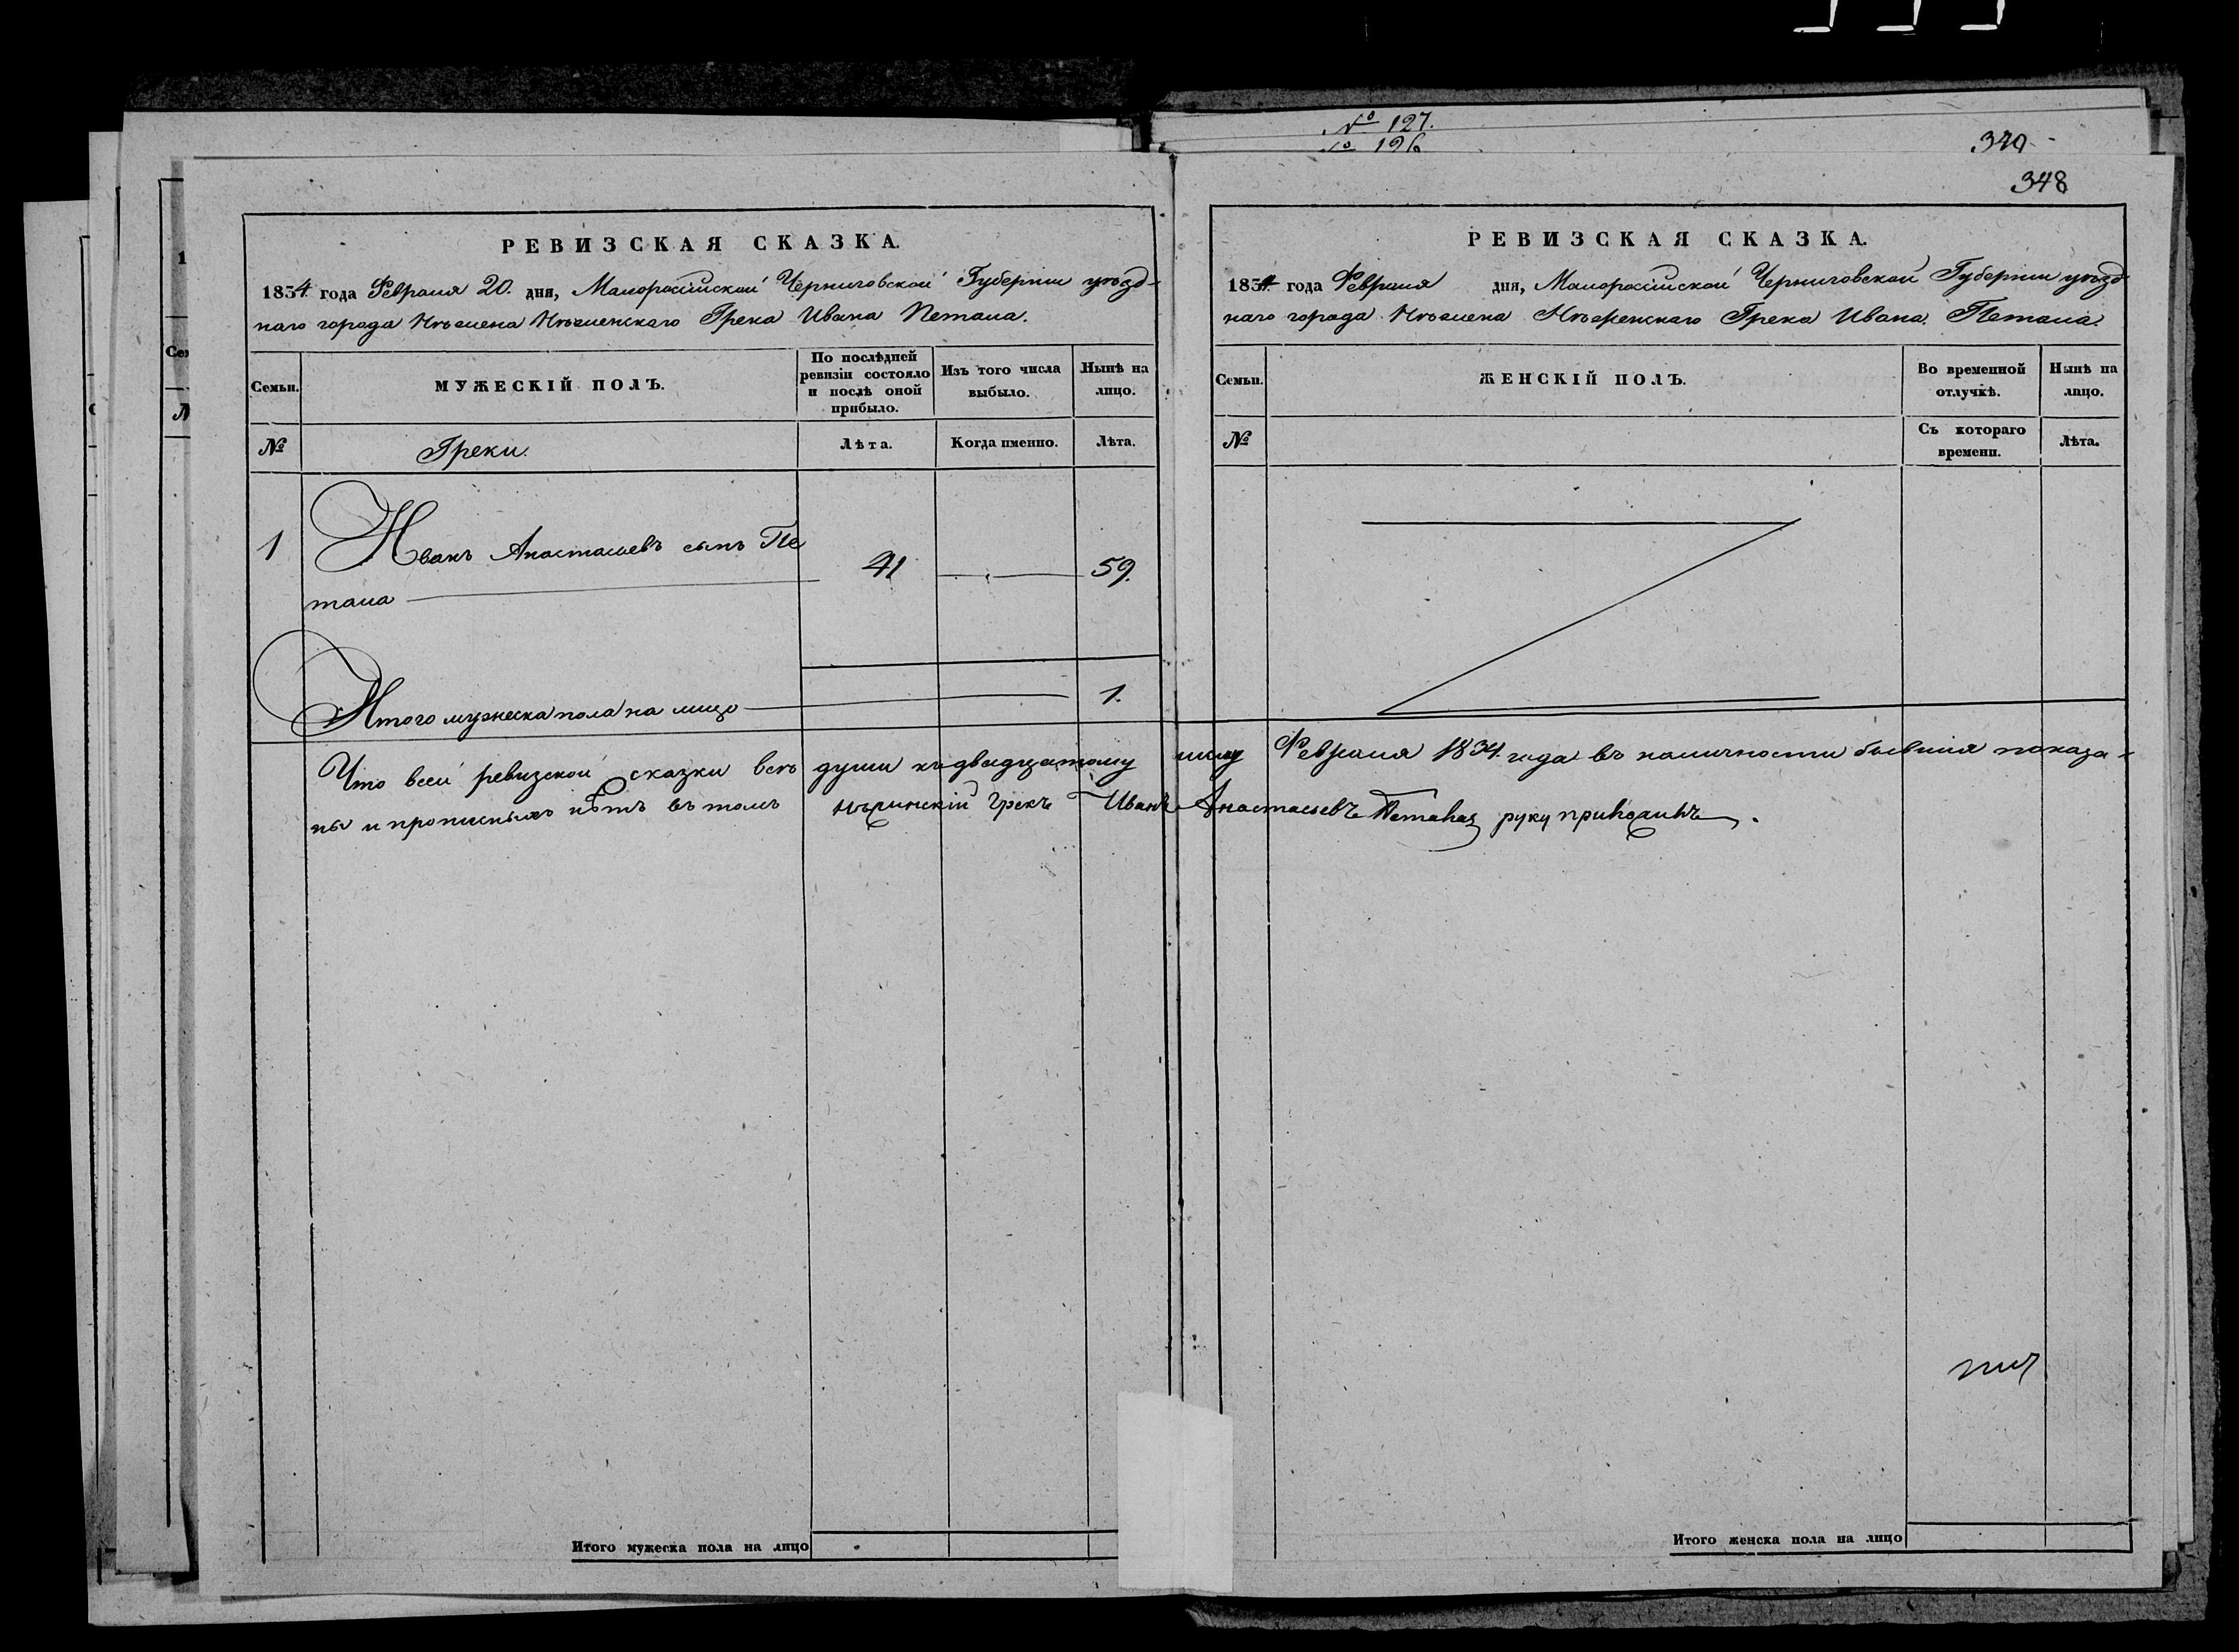 № 127.
№ 196
340
348
РЕВИЗСКАЯ СКАЗКА.
1834 года Февраля 20. дня, Малороссiйской Черниговской Губернiи уѣзд-
наго города Нѣжена Нѣженскаго Грека Ивана Петала.
Семьи.
МУЖЕСКIЙ ПОЛЪ.
По послѣдней ревизiи состояло и послѣ оной прибыло.
Изъ того числа выбыло.
Нынѣ на лицо.
№
Греки.
Лѣта.
Когда именно.
Лѣта.
1 Иванъ Анастасьевъ сынъ Пе
тала
41
59.
Итого мужеска пола на лицо 1.
РЕВИЗСКАЯ СКАЗКА.
1834 года Февраля дня, Малороссiйской Черниговской Губернiи уѣзд
наго города Нѣжена Нѣженскаго Грека Ивана Петала.
Семьи.
ЖЕНСКIЙ ПОЛЪ.
Во временной отлучкѣ.
Нынѣ на лицо.
№
Съ котораго времени.
Лѣта.
Что всей ревизской сказки всѣ души къ двадцатому числу Февраля 1834 года въ наличности бывшiя показа-
ны и прописныхъ нѣтъ въ томъ Нѣжинскiй Грекъ Иванъ Анастасьевъ руку приложилъ.
Итого мужеска пола на лицо
Итого женска пола на лицо